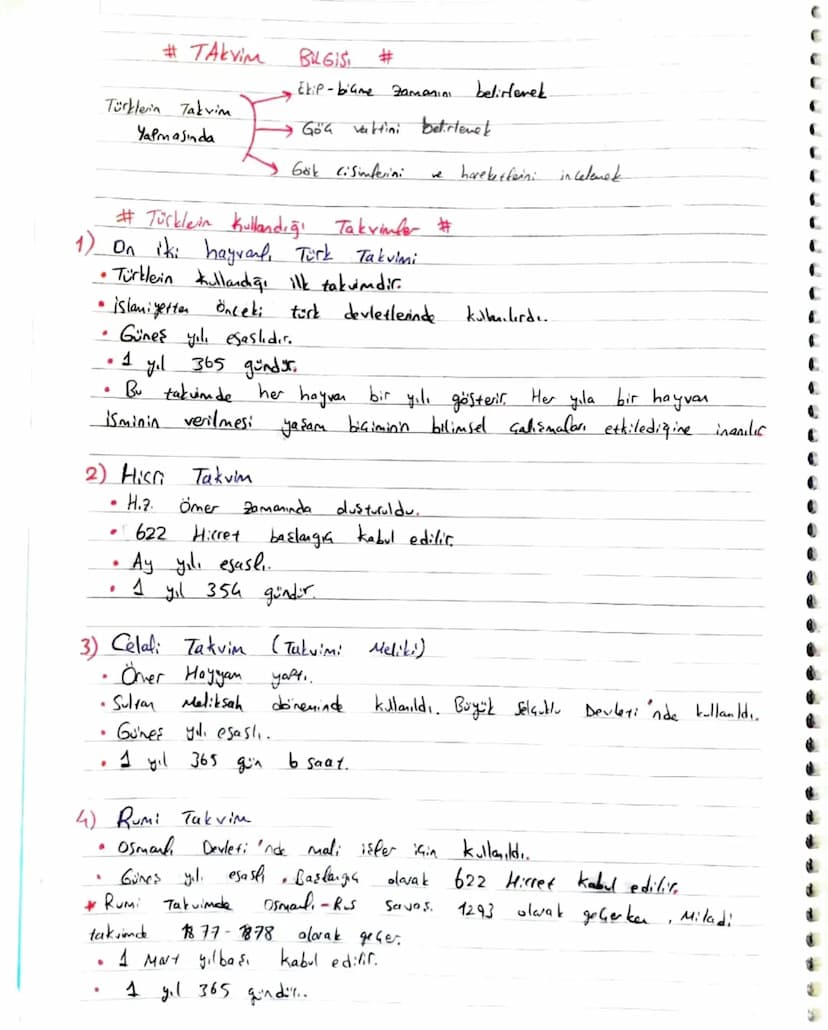 # TAkvim BiLGiSi #
Ekip-biçme zamanını belirlemek
Türklerin Takvim
Yapmasında
Göç vaktini belirlemek
Gök cisimlerini ve hareketlerini incelemek
# Türklerin Kullandığı Takvimler #
1) On iki hayvanlı Türk Takvimi
• Türklerin kullandığı ilk takvimdir.
• islamiyetten önceki türk devletlerinde kullanılırdı.
• Güneş yılı esaslıdır.
• 1 yıl 365 gündür.
• Bu takvimde her hayvan bir yılı gösterir. Her yıla bir hayvan
isminin verilmesi yaşam biçiminin bilimsel çalışmaları etkilediğine inanılır
2) Hicri Takvim
• H.z. Ömer zamanında oluşturuldu.
• 622 Hicret başlangıç kabul edilir.
• Ay yılı esaslı.
• 1 yıl 354 gündür.
3) Celali Takvim (Takvimi Meliki)
• Ömer Hayyam yaptı.
• Sultan Melikşah döneminde kullanıldı. Büyük Selçuklu Devleti'nde kullanıldı.
• Güneş yılı esaslı.
• 1 yıl 365 gün 6 saat.
4) Rumi Takvim
• Osmanlı Devleti'nde mali işler için kullanıldı.
• Güneş yılı esaslı. Başlangıç olarak 622 Hicret kabul edilir.
* Rumi Takvimde Osmanlı-Rus Savaşı 1293 olarak geçerken, Miladi
takvimde 1877-1878 olarak geçer.
• 1 Mart yılbaşı kabul edilir.
• 1 yıl 365 gündür.